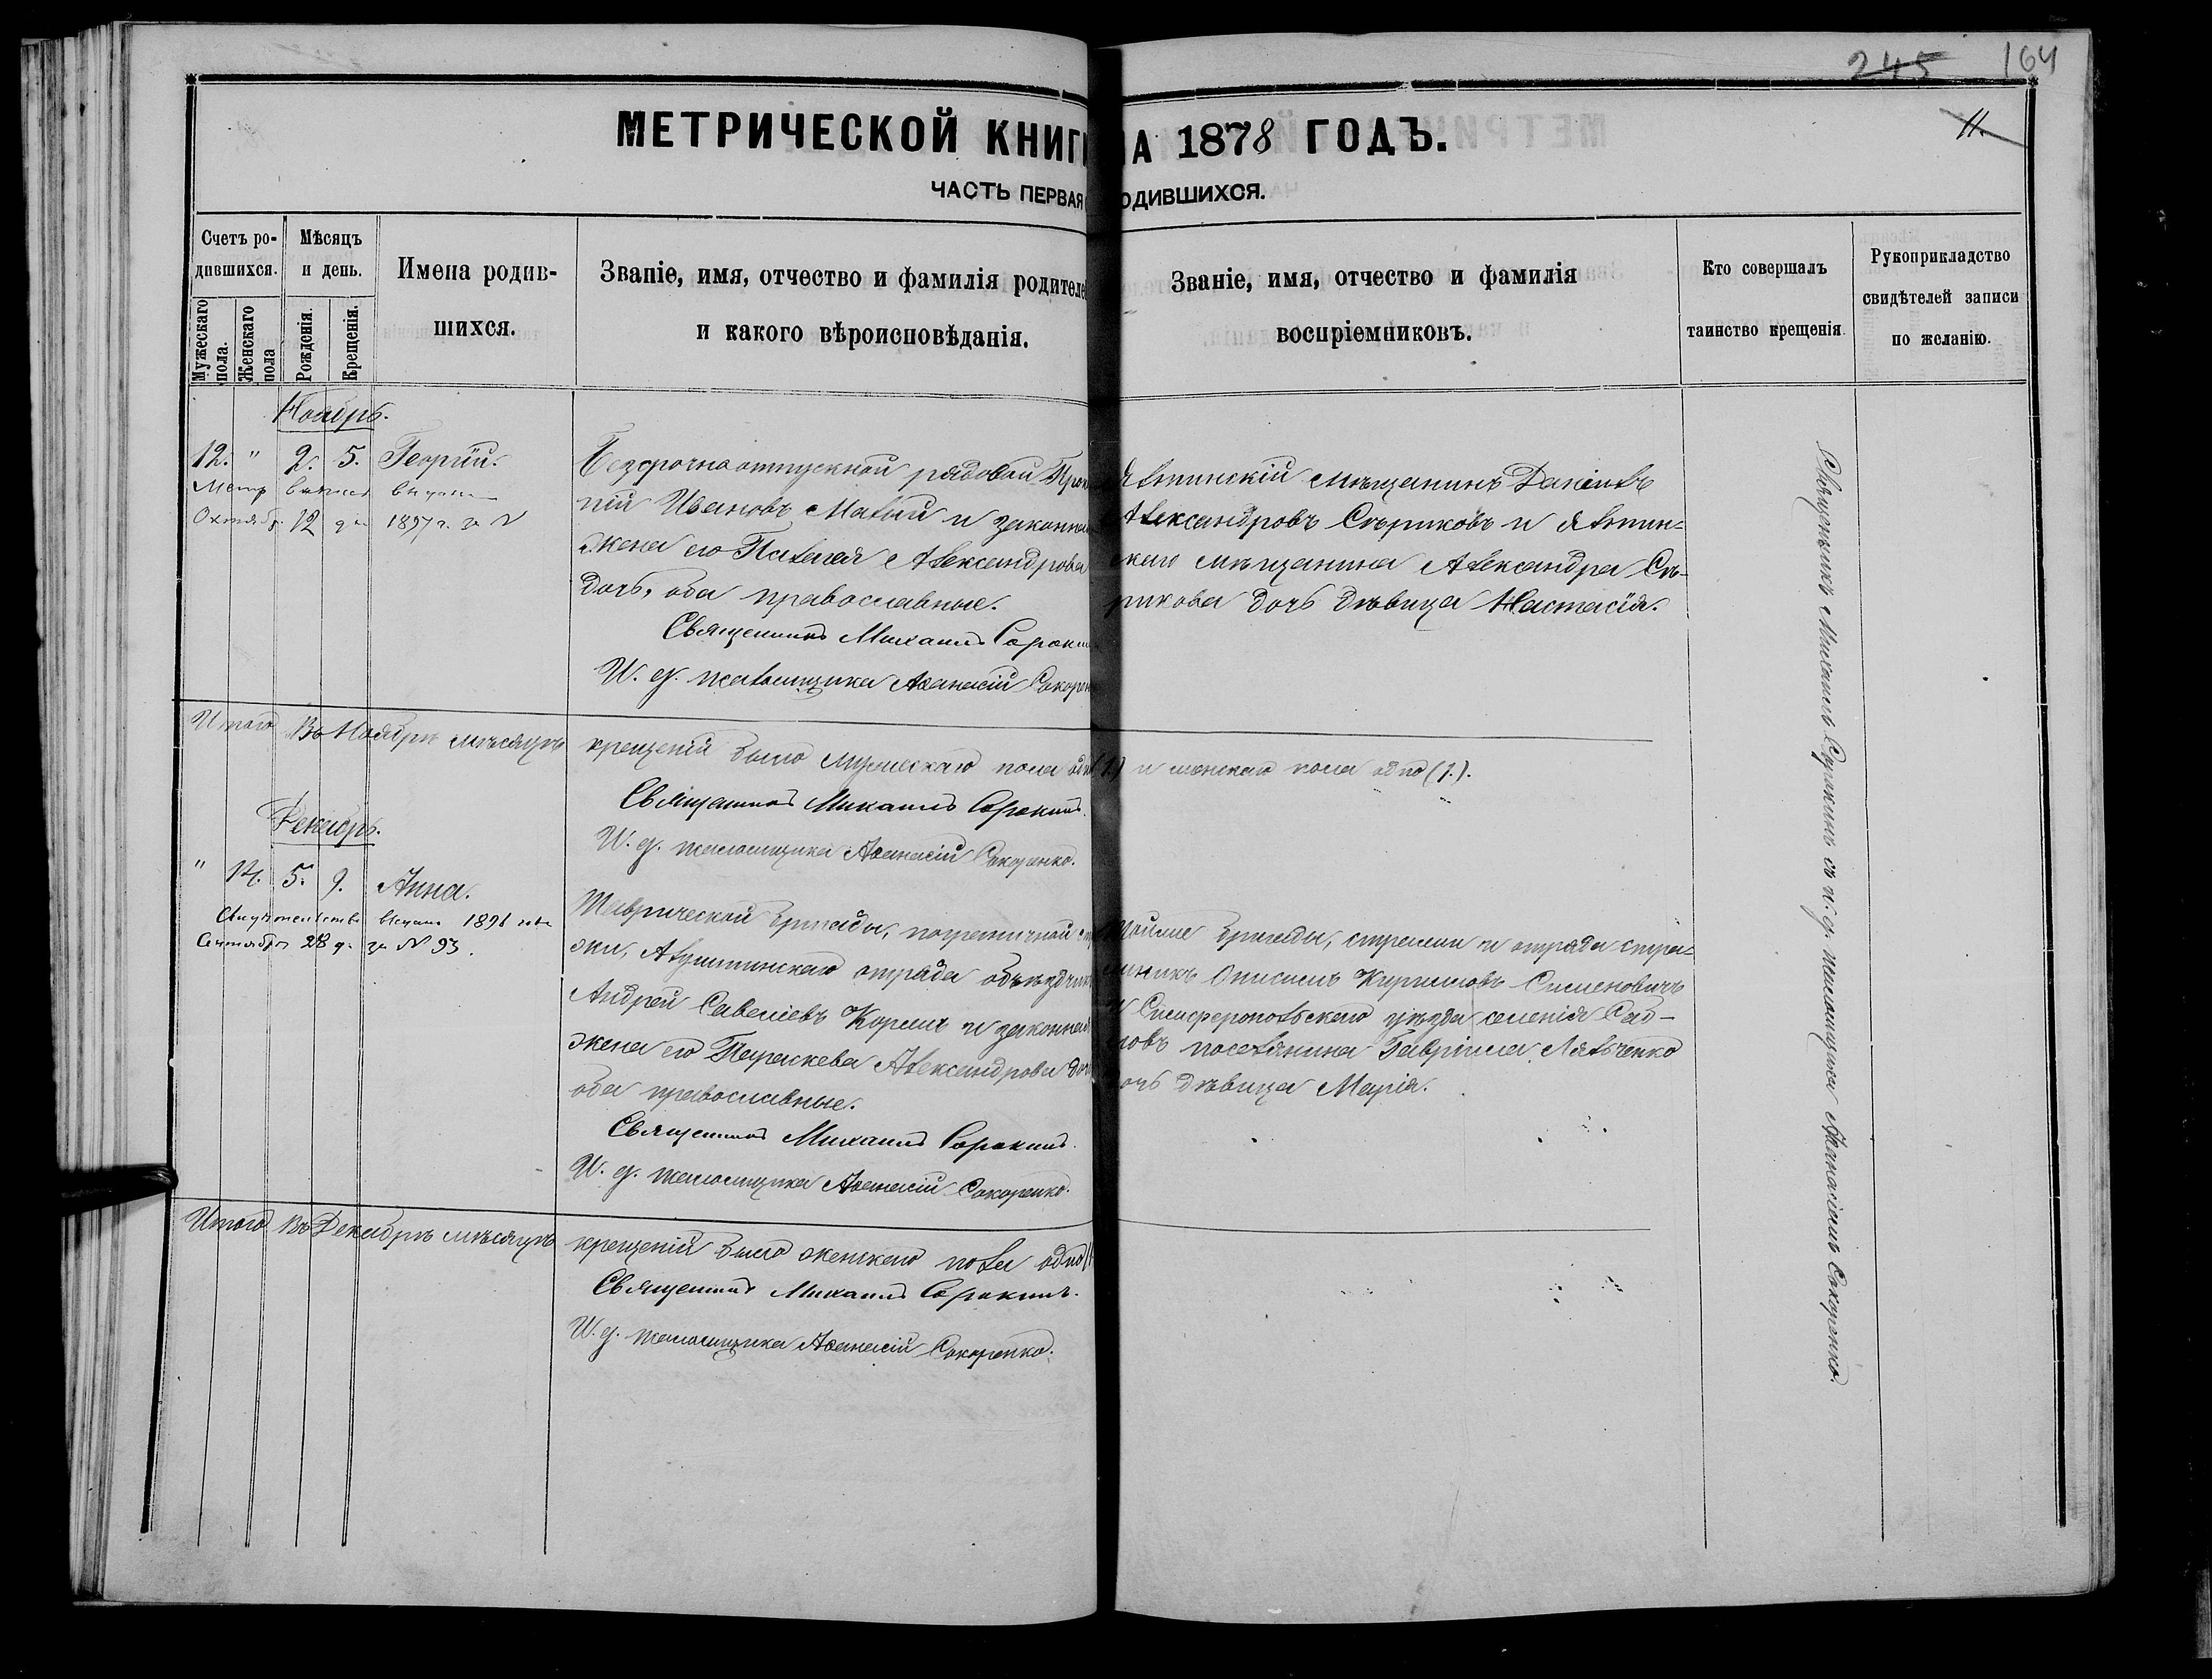 245 164
11.
МЕТРИЧЕСКОЙ КНИГИ НА 1878 ГОДЪ.
ЧАСТЬ ПЕРВАЯ ОДИВШИХСЯ.
Счетъ ро-
дившихся.
Мужескаго пола.
Женскаго пола
Мѣсяцъ
и день.
Рожденія.
Крещенія.
Имена родив-
шихся.
Званіе, имя, отчество и фамилія родителе
и какого вѣроисповѣданія.
Званіе, имя, отчество и фамилія
воспріемниковъ.
Кто совершалъ
таинство крещенія.
Рукоприкладство
свидѣтелей записи
по желанію.
Ноябрь.
12. " 2. 5. Георгій.
Метр
Октябр. 12 дн 1897 г. за №
Безсрочноотпускной рядовой Прок
пій Ивановъ Матій и законна
жена его Пелагея Александрова
дочь, оба православные.
Священникъ Михаилъ Сороки
И. д. псаломщика Аѳанасій Сокорен
Ялтинскій мѣщанинъ Даніилъ
Александровъ Сѣриковъ и Ялтин-
скаго мѣщанина Александра Сѣ-
рикова дочь дѣвица Настасія.
Итого въ Ноябрѣ мѣсяцѣ крещеній было мужескаго пола одн (1.) и женскаго пола одно (1.).
Священникъ Михаилъ Сорокинъ.
И. д. псаломщика Аѳанасій Сокоренко.
Декабрь.
" 14. 5. 9. Анна.
Свидѣтельство выдано 1898 года
Сентября 28 д. за № 93.
Таврической бригады, пограничной стр
жи, Алуштинскаго отряда объѣздчик
Андрей Савеліевъ Кормъ и законная
жена его Параскева Александрова доч
оба православные.
Священникъ Михаилъ Сорокинъ.
И. д. псаломщика Аѳанасій Сокоренко.
Тойже бригады, стражи и отряда стра-
жникъ Онисимъ Кириловъ Сименовичъ
и Симферопольскаго уѣзда селенія Саб-
ловъ поселянина Гавріила Лятченко
очь дѣвица Марія.
Итого въ Декабрѣ мѣсяцѣ крещеній было женскаго пола одно (1
Священникъ Михаилъ Сорокинъ.
И. д. псаломщика Аѳанасій Сокоренко.
Священникъ Михаилъ Сорокинъ съ и. д. псаломщика Аѳанасіемъ Сокоренко.